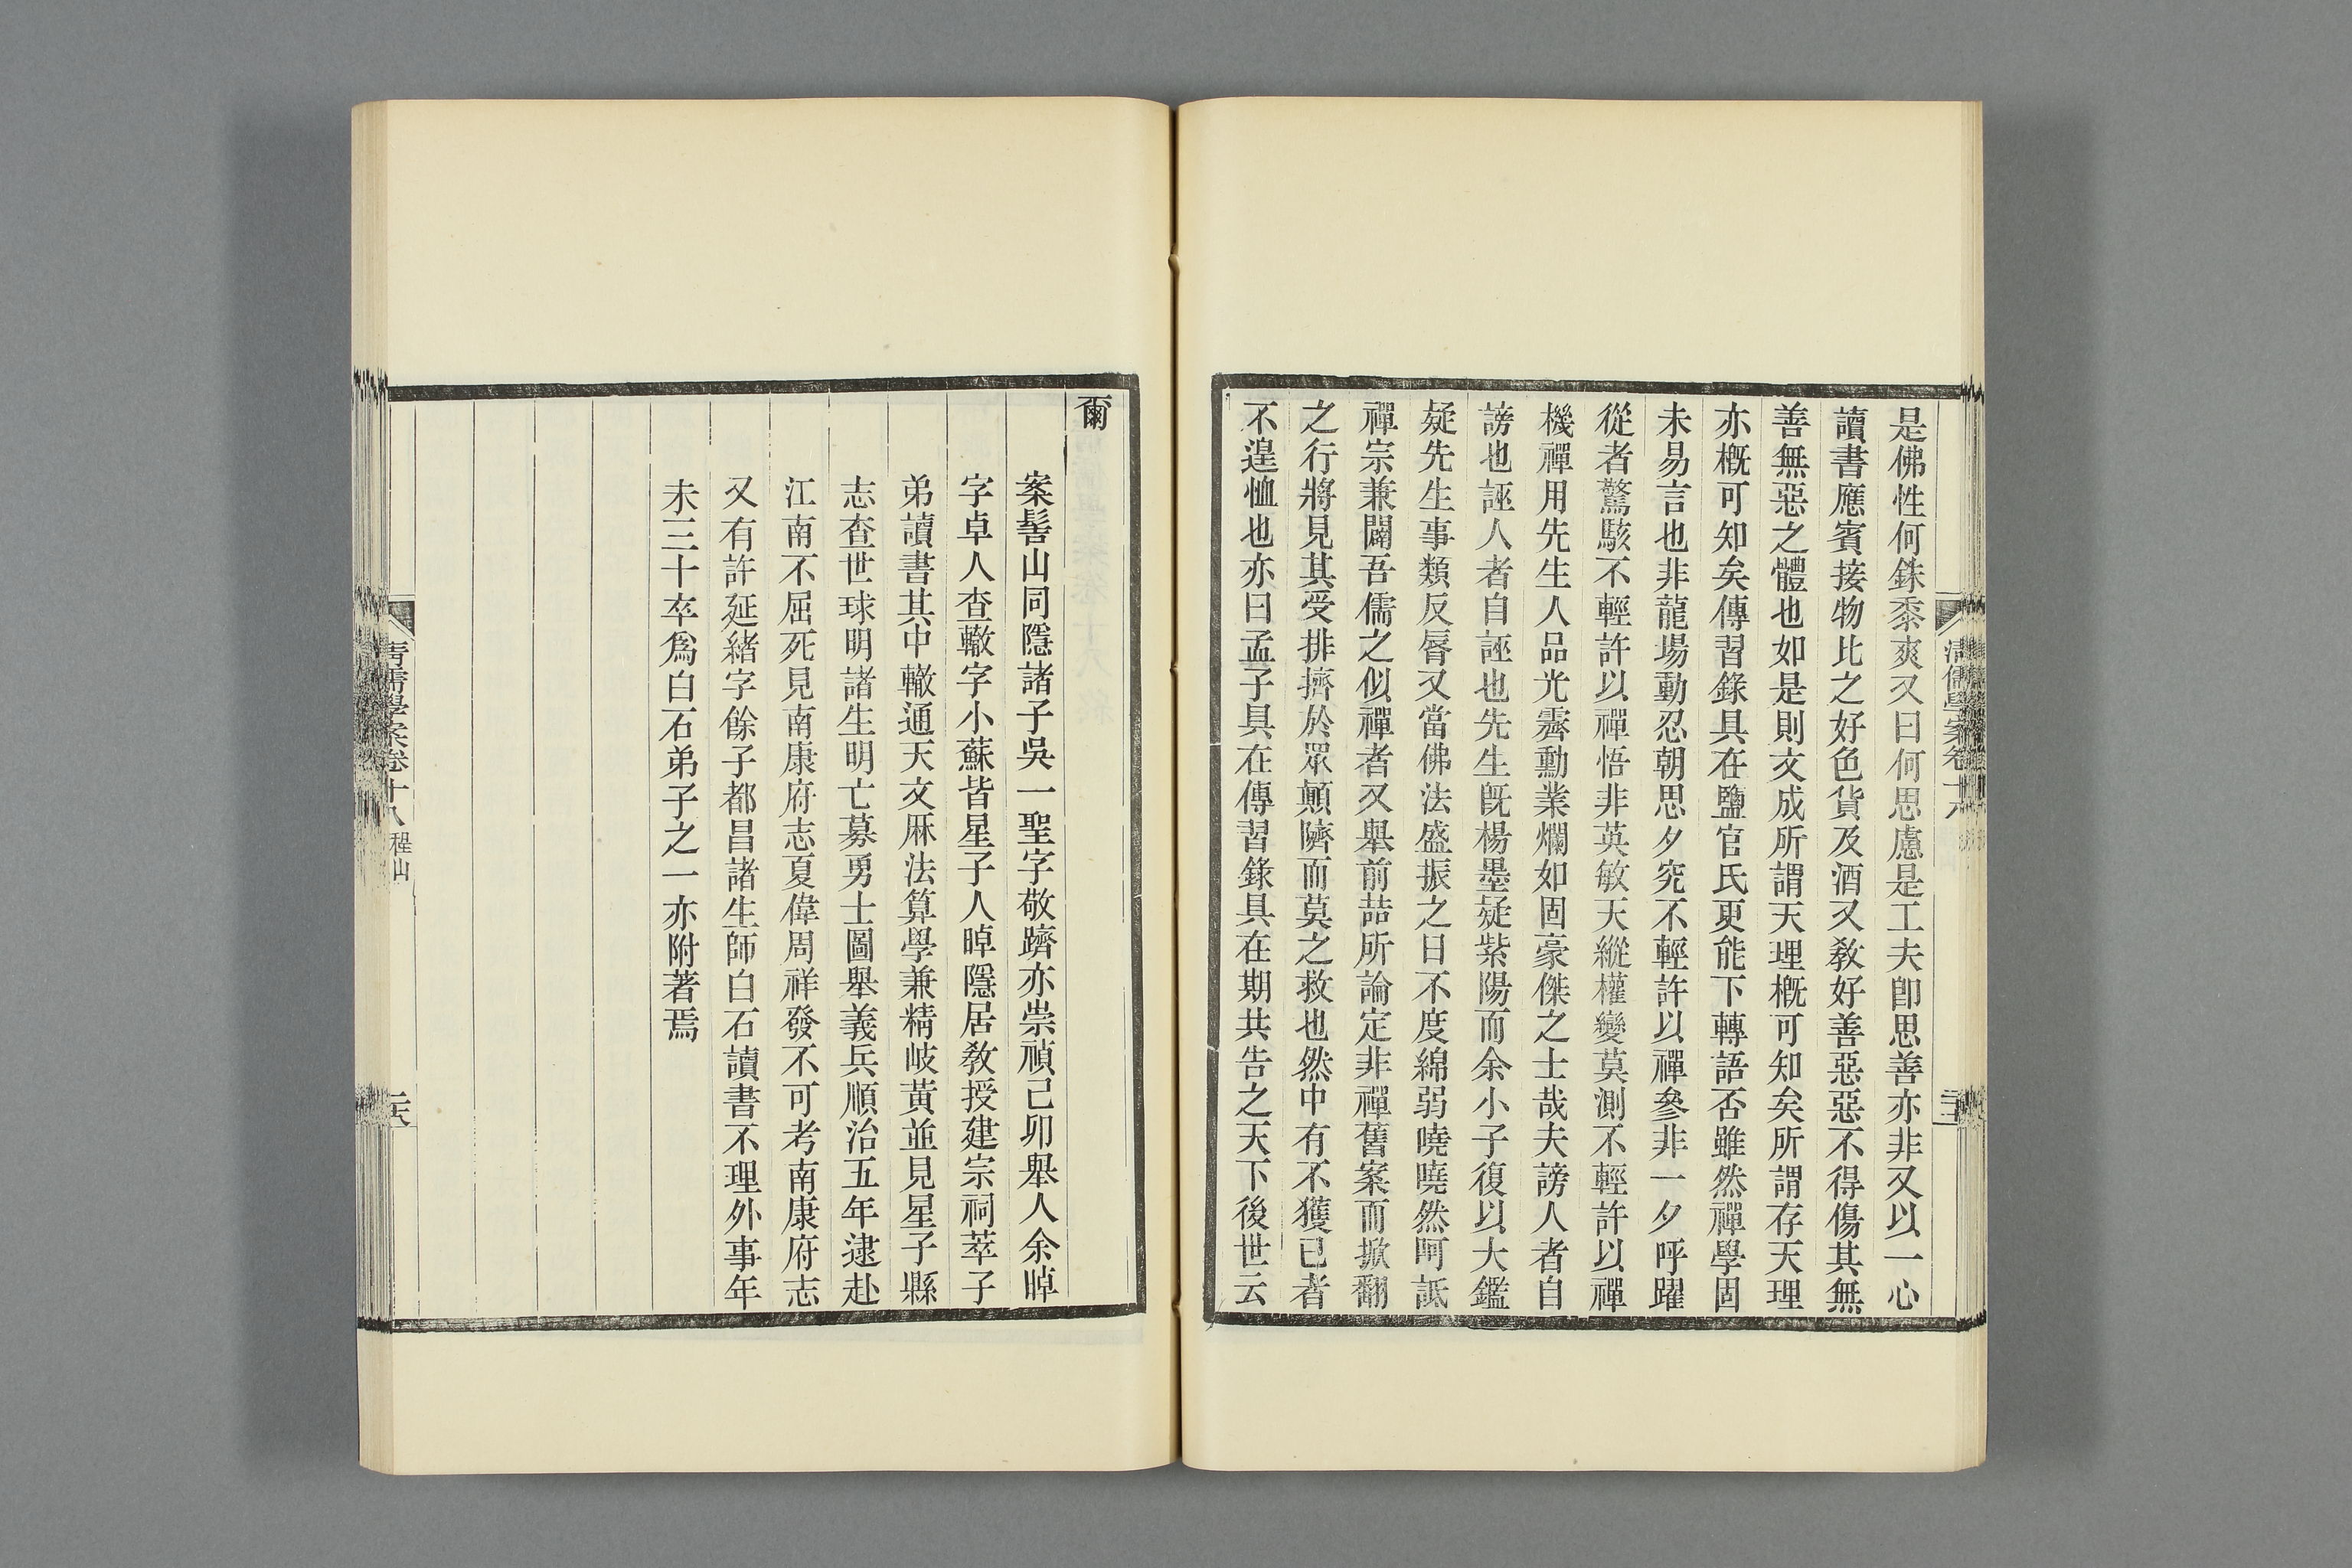 是佛性何銖黍爽又曰何思慮是工夫卽思善亦非又以一心
讀書應賓接物比之好色貨及酒又敎好善惡惡不得傷其無
善無惡之體也如是則文成所謂天理槪可知矣所謂存天理
亦槪可知矣傳習錄具在鹽官氏更能下轉語否雖然禪學固
未易言也非龍場動忍朝思夕究不輕許以禪參非一夕呼躍
從者驚駭不輕許以禪悟非英敏天縱權變莫測不輕許以禪
機禪用先生人品光霽勳業爛如固豪傑之士哉夫謗人者自
謗也誣人者自誣也先生旣楊墨疑紫陽而余小子復以大鑑
疑先生事類反脣又當佛法盛振之日不度綿弱嘵嘵然訶詆
禪宗兼闢吾儒之似禪者又舉前喆所論定非禪舊案而掀翻
之行將見其受排擠於眾顚隮而莫之救也然中有不獲已者
不遑恤也亦曰孟子具在傳習錄具在期共告之天下後世云
爾
案髻山同隱諸子吳一聖字敬躋亦崇禎己卯舉人余晫
字卓人查轍字小蘇皆星子人晫隱居敎授建宗祠萃子
弟讀書其中轍通天文厤法算學兼精岐黃並見星子縣
志查世球明諸生明亡募勇士圖舉義兵順治五年逮赴
江南不屈死見南康府志夏偉周祥發不可考南康府志
又有許延緖字餘子都昌諸生師白石讀書不理外事年
未三十卒爲白石弟子之一亦附著焉
清儒學案卷十八 程山